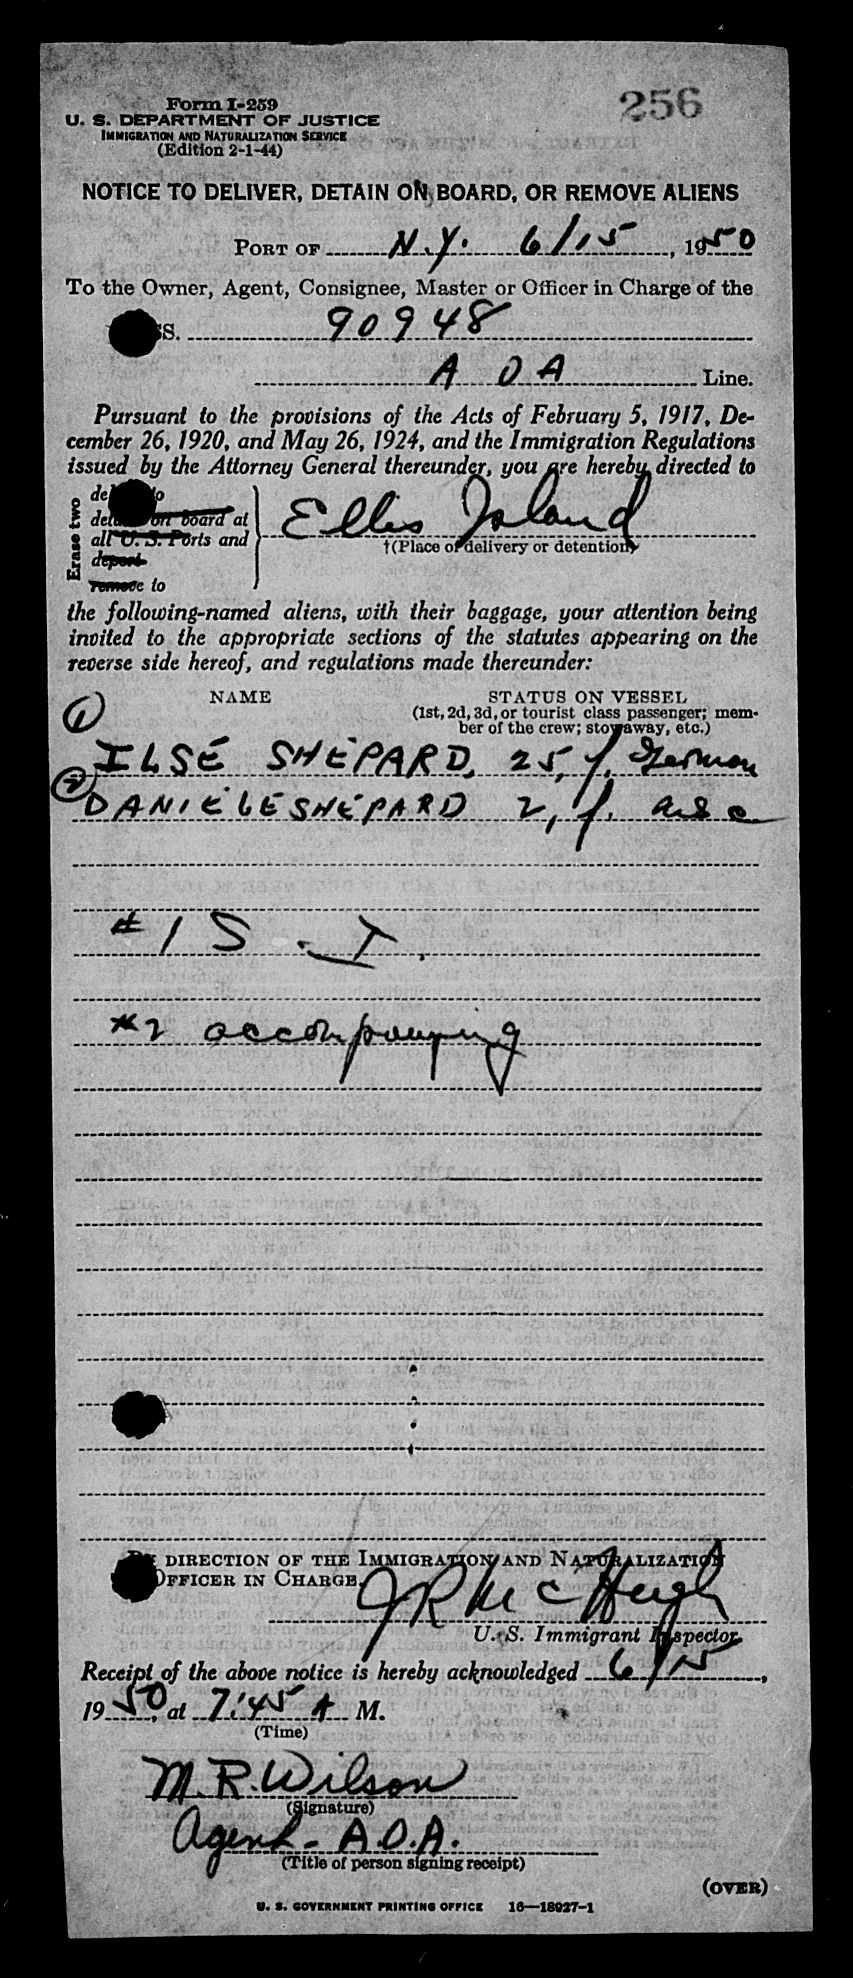 256
Form I-259
U. S. DEPARTMENT OF JUSTICE
IMMIGRATION AND NATURALIZATION SERVICE
(Edition 2-1-44)
NOTICE TO DELIVER, DETAIN ON BOARD, OR REMOVE ALIENS
PORT OF N.Y. 6/15, 1950
To the Owner, Agent, Consignee, Master or Officer in Charge of the
SS. 90948
A O A Line.
Pursuant to the provisions of the Acts of February 5, 1917, De-
cember 26, 1920, and May 26, 1924, and the Immigration Regulations
issued by the Attorney General thereunder, you are hereby directed to
Erase two
on board at
all U. S. Ports and
deport
remove to
Ellis Island
†(Place of delivery or detention)
the following-named aliens, with their baggage, your attention being
invited to the appropriate sections of the statutes appearing on the
reverse side hereof, and regulations made thereunder:
NAME STATUS ON VESSEL
(1st, 2d, 3d, or tourist class passenger; mem-
ber of the crew; stowaway, etc.)
① ILSE SHEPARD, 25, f. German
② DANIELE SHEPARD 2, f.
#1 S.I.
#2 accompanying
BY DIRECTION OF THE IMMIGRATION AND NATURALIZATION
OFFICER IN CHARGE.
J R McHugh
U. S. Immigrant Inspector.
Receipt of the above notice is hereby acknowledged 6/15,
1950, at 7:45 A M.
(Time)
M. R. Wilson
(Signature)
Agent - A.O.A.
(Title of person signing receipt)
(OVER)
U. S. GOVERNMENT PRINTING OFFICE 16—18927-1